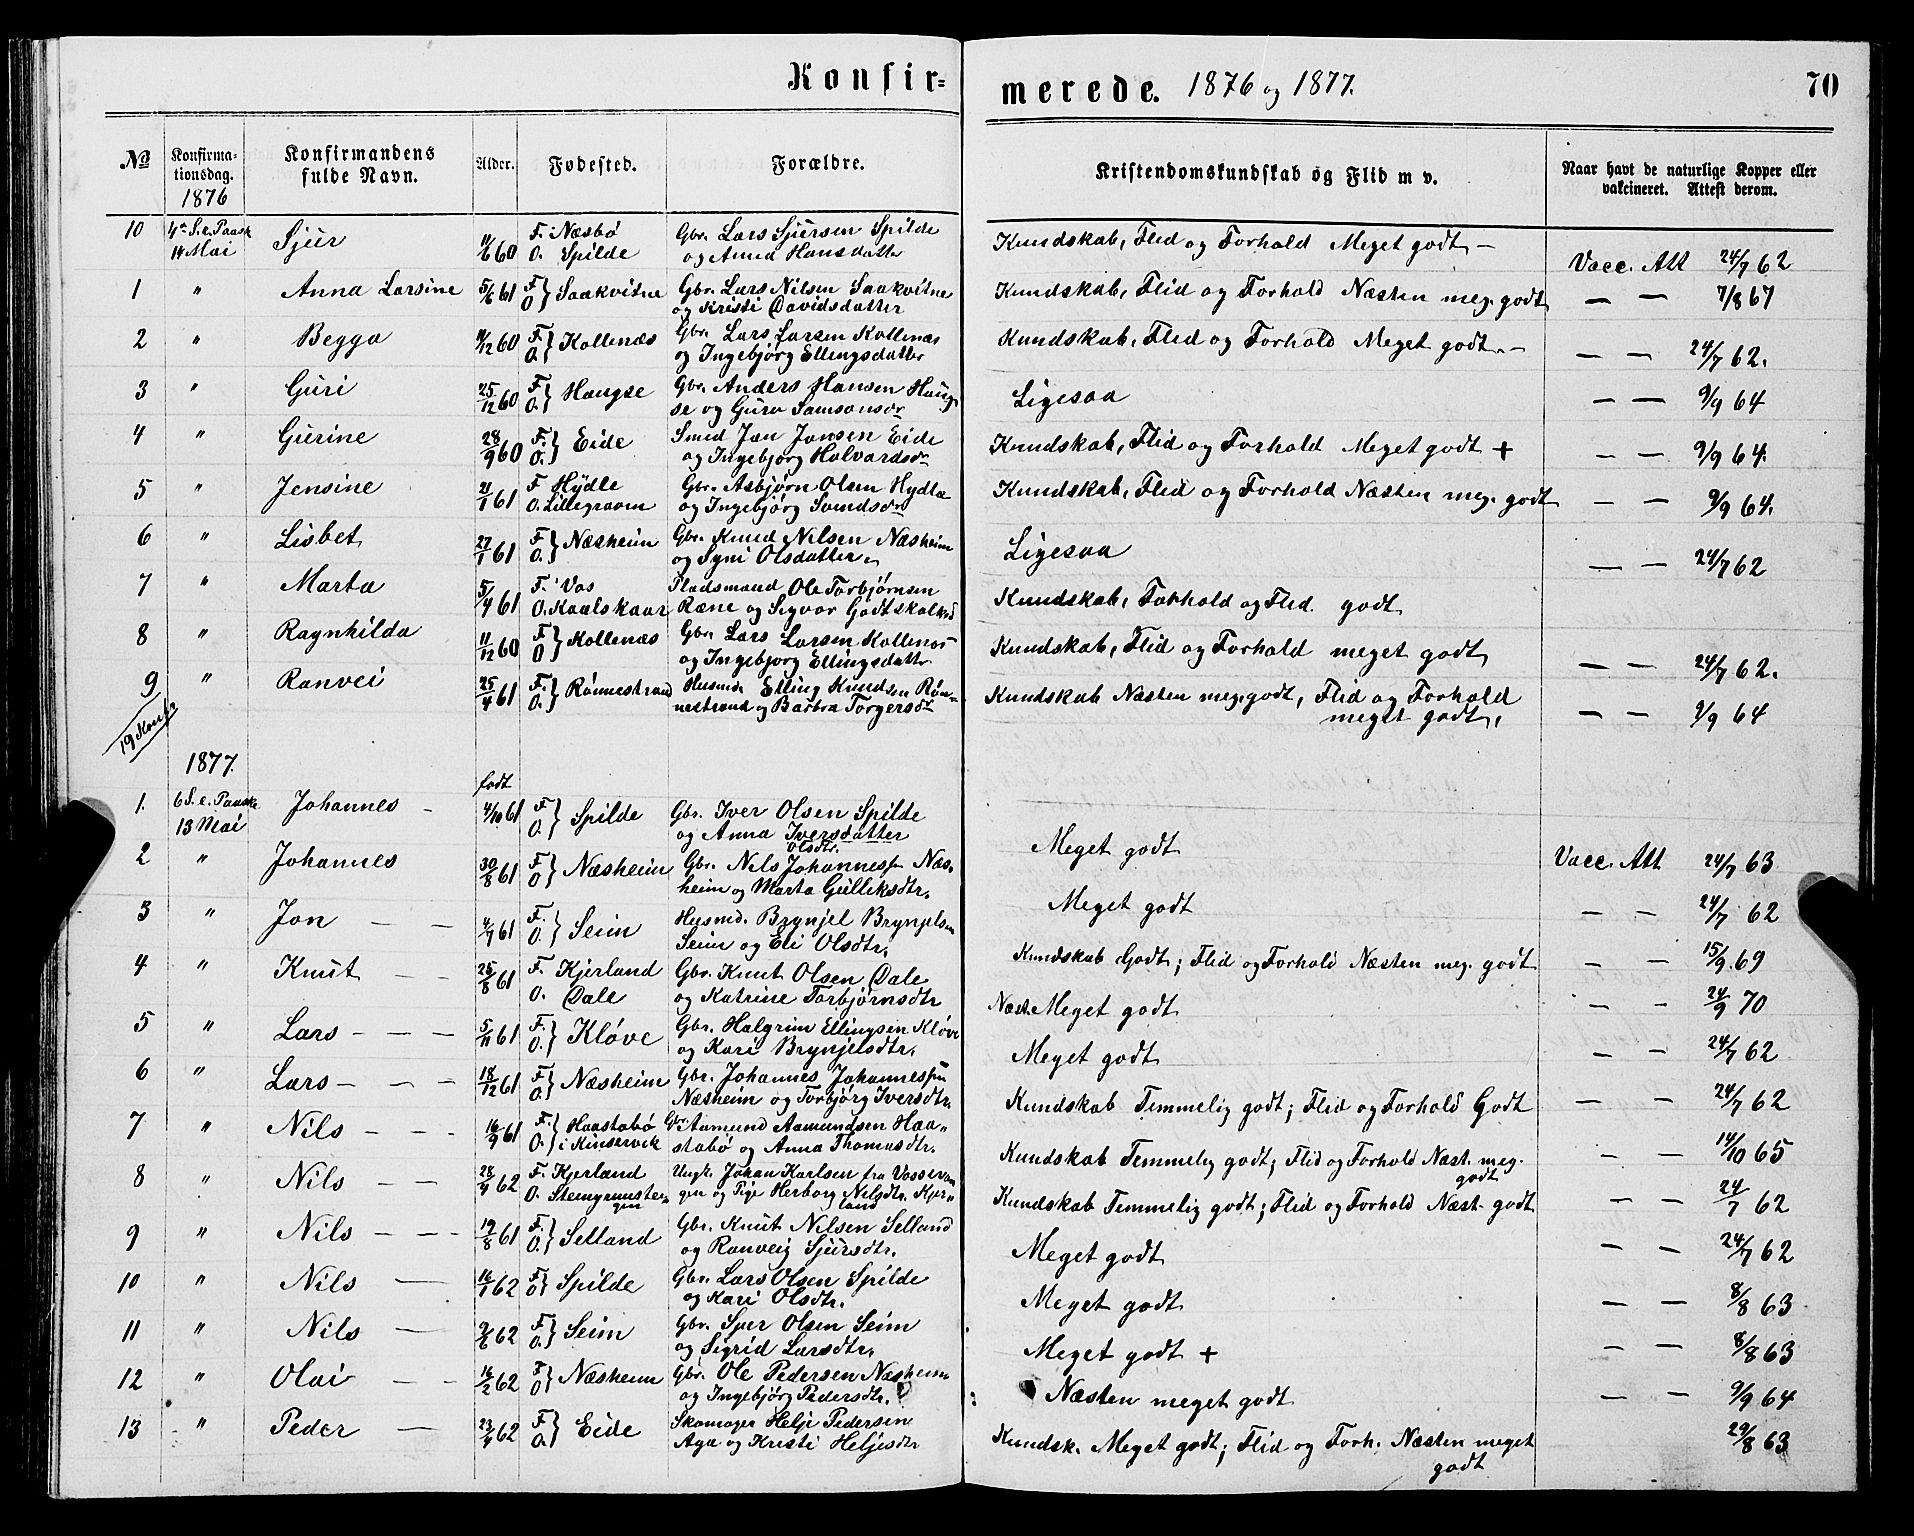 Konfir=
merede. 1876 og 1877. 70
No Konfirma-tionsdag. Konfirmandens fulde Navn. Alder. Fødested. Forældre. Kristendomskundskab og Flid m v. Naar havt de naturlige Kopper eller vakcineret. Attest derom.
1876
10 4de S. e. Paask 14 Mai Sjur 11/6 60 F. Næsbø O. Spilde Gbr. Lars Sjursen Spilde og Anna Hansdatter Kundskab, Flid og Forhold Meget godt – Vacc. Att 24/7 62
1 " Anna Larsine 5/6 61 F O } Saakvitne Gbr. Lars Nilsen Saakvitne og Kristi Davidsdatter Kundskab, Flid og Forhold Næsten meg. godt — — 7/8 67
2 " Begga 11/12 60 F. O. } Kollenæs Gbr. Lars Larsen Kollenæs og Ingebjørg Ellingsdatter Kundskab, Flid og Forhold Meget godt. – — — 24/7 62.
3 " Guri 25/12 60 F. O. } Haugse Gbr. Anders Hansen Haugse og Guro Samsonsdr Ligesaa — — 9/9 64
4 " Gurine 28/9 60 F. O. } Eide Smed Jon Jonsen Eide og Ingebjørg Halvardsdr Kundskab, Flid og Forhold Meget godt + — — 9/9 64.
5 " Jensine 21/1 61 F Hydle O. Lillegraven Gbr. Asbjørn Olsen Hydle og Ingebjørg Svendsdr Kundskab, Flid og Forhold Næsten meg. godt — — 9/9 64.
6 " Lisbet 27/1 61 F. O. } Næsheim Gbr. Knud Nilsen Næsheim og Syni Olsdatter Ligesaa — — 24/7 62
7 " Marta 5/4 61 F. Vos O. Kaalskaar Pladsmand Ole Torbjørnsen Ræne og Sigvor Godtskalksd Kundskab, Forhold og Flid. godt
8 " Ragnhilda 11/12 60 F O } Kollenæs Gbr. Lars Larsen Kollenæs og Ingebjørg Ellingsdattr Kundskab, Flid og Forhold meget godt — — 24/7 62.
9 " Ranvei 25/4 61 F. O. } Rønnestrand Husmd. Elling Knudsen Rønnestrand og Barbra Torgersdr Kundskab Næsten meg. godt, Flid og Forhold meget godt, — — 9/9 64
19 Konfr
1877. født
1. 6 S. e. Paaske 13 Mai Johannes – 4/10 61 F O. } Spilde Gbr. Iver Olsen Spilde og Anna Iversdatter Olsdtr. Meget godt Vacc. Att 24/7 63
2 " Johannes 30/8 61 F O } Næsheim Gbr. Nils Johanness. Næsheim og Marta Gulliksdtr. Meget godt — — 24/7 62
3 " Jon — — 4/7 61 F. O. } Seim Husmd. Brynjel Brynjelsen Seim og Eli Olsdtr. Kundskab Godt; Flid og Forhold Næsten meg. godt — — 15/9. 69
4 " Knut — — 25/8 61 F. Kjerland O. Dale Gbr. Knut Olsen Dale og Katrine Torbjørnsdtr Næst. Meget godt — — 24/9 70
5 " Lars — — — 5/11 61 F. O. } Kløve Gbr. Halgrim Ellingsen Kløve og Kari Brynjelsdtr. Meget godt — — 24/7 62
6 " Lars — — — 18/12 61 F O } Næsheim Gbr. Johannes Johannessen Næsheim og Torbjørg Iversdtr. Kundskab Temmelig godt; Flid og Forhold Godt — — 24/7 62
7 " Nils — — — 16/9 61 F. O. } Haastabø i Kinservik Gbr. Aamund Aamundsen Haastabø og Anna Thomasdtr. Kundskab Temmelig godt; Flid og Forhold Næst. meg. godt — — 14/10 65
8 " Nils — — 28/4 62 F. Kjerland O. Steingrunstengen Ungk. Johan Karlsen fra Vossevangen og Pige Herborg Nilsdtr. Kjerland Kundskab Temmelig godt; Flid og Forhold Næst. godt — — 24/7 62
9 " Nils — — — 19/8 61 F O. } Selland Gbr. Knut Nilsen Selland og Ranveig Sjursdtr. Meget godt — — 24/7 62
10 " Nils — 16/1 62 F O } Spilde Gbr. Lars Olsen Spilde og Kari Olsdtr. Meget godt — — 8/8 63
11 " Nils — 9/6 62 F O. } Seim Gbr. Sper Olsen Seim og Sigrid Larsdtr. Meget godt + — — 8/8 63
12 " Olai — — 16/2 62 F O } Næsheim Gbr. Ole Pedersen Næsheim og Ingebjørg Pedersdtr. Næsten meget godt — — 9/9 64
13 " Peder — 23/4 62 F O. } Eide Skomager Helje Pedersen Aga og Kristi Heljesdtr Kundsk. Meget godt; Flid og Forh. Næsten meget godt 29/8 63